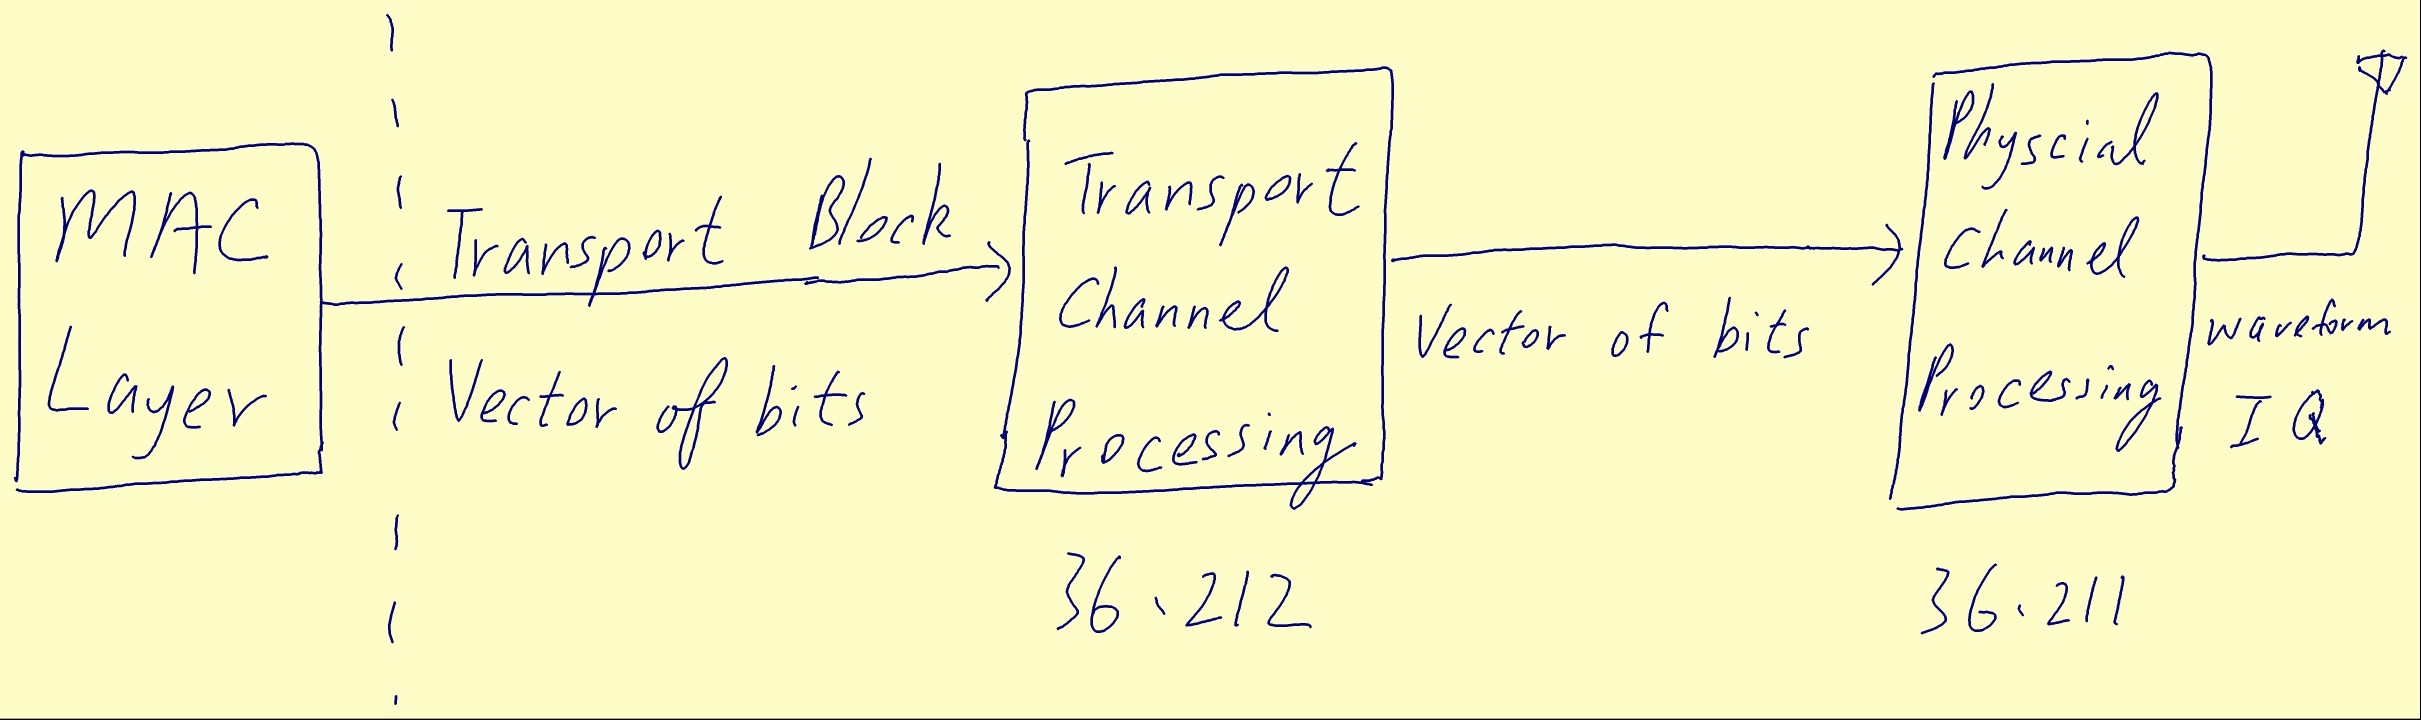 MAC
Layer
Transport Block
Vector of bits
Transport
Channel
Processing
36.212
Vector of bits
Physcial
Channel
Processing
36.211
waveform
I Q